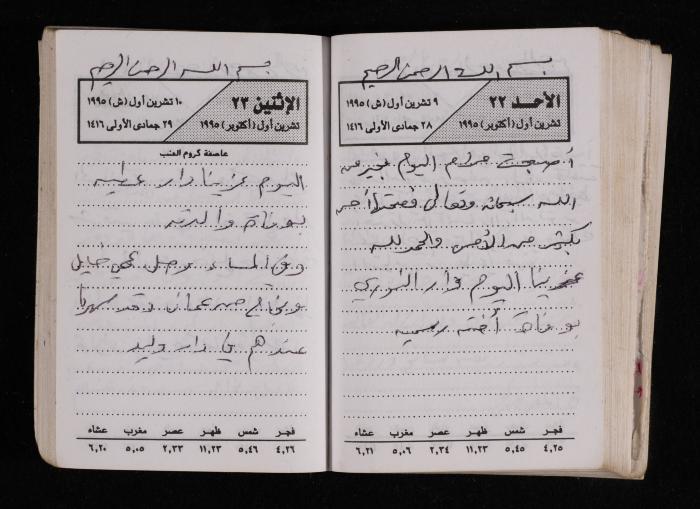 بسم الله الرحمن الرحيم
الأحد ٢٢
٩ تشرين أول (ش) ١٩٩٥
تشرين أول (أكتوبر) ١٩٩٥
٢٨ جمادى الأولى ١٤١٦
أصبحت مرام اليوم بخير من
الله سبحانه وتعالى فصحتها أحسن
بكثير من الأمس والحمد لله
عزينا اليوم دار النوري
بوفاة أخته رسمية
فجر شمس ظهر عصر مغرب عشاء
٤,٢٥ ٥,٤٥ ١١,٢٣ ٢,٣٤ ٥,٠٦ ٦,٢١
بسم الله الرحمن الرحيم
الإثنين ٢٣
١٠ تشرين أول (ش) ١٩٩٥
تشرين أول (أكتوبر) ١٩٩٥
٢٩ جمادى الأولى ١٤١٦
عاصفة كروم العنب
اليوم عزينا دار عطية
بوفاة والدته
وفي المساء وصل عمي خليل
من عمان وقد سهرنا
عندهم في دار وليد
فجر شمس ظهر عصر مغرب عشاء
٤,٢٦ ٥,٤٦ ١١,٢٣ ٢,٣٣ ٥,٠٥ ٦,٢٠